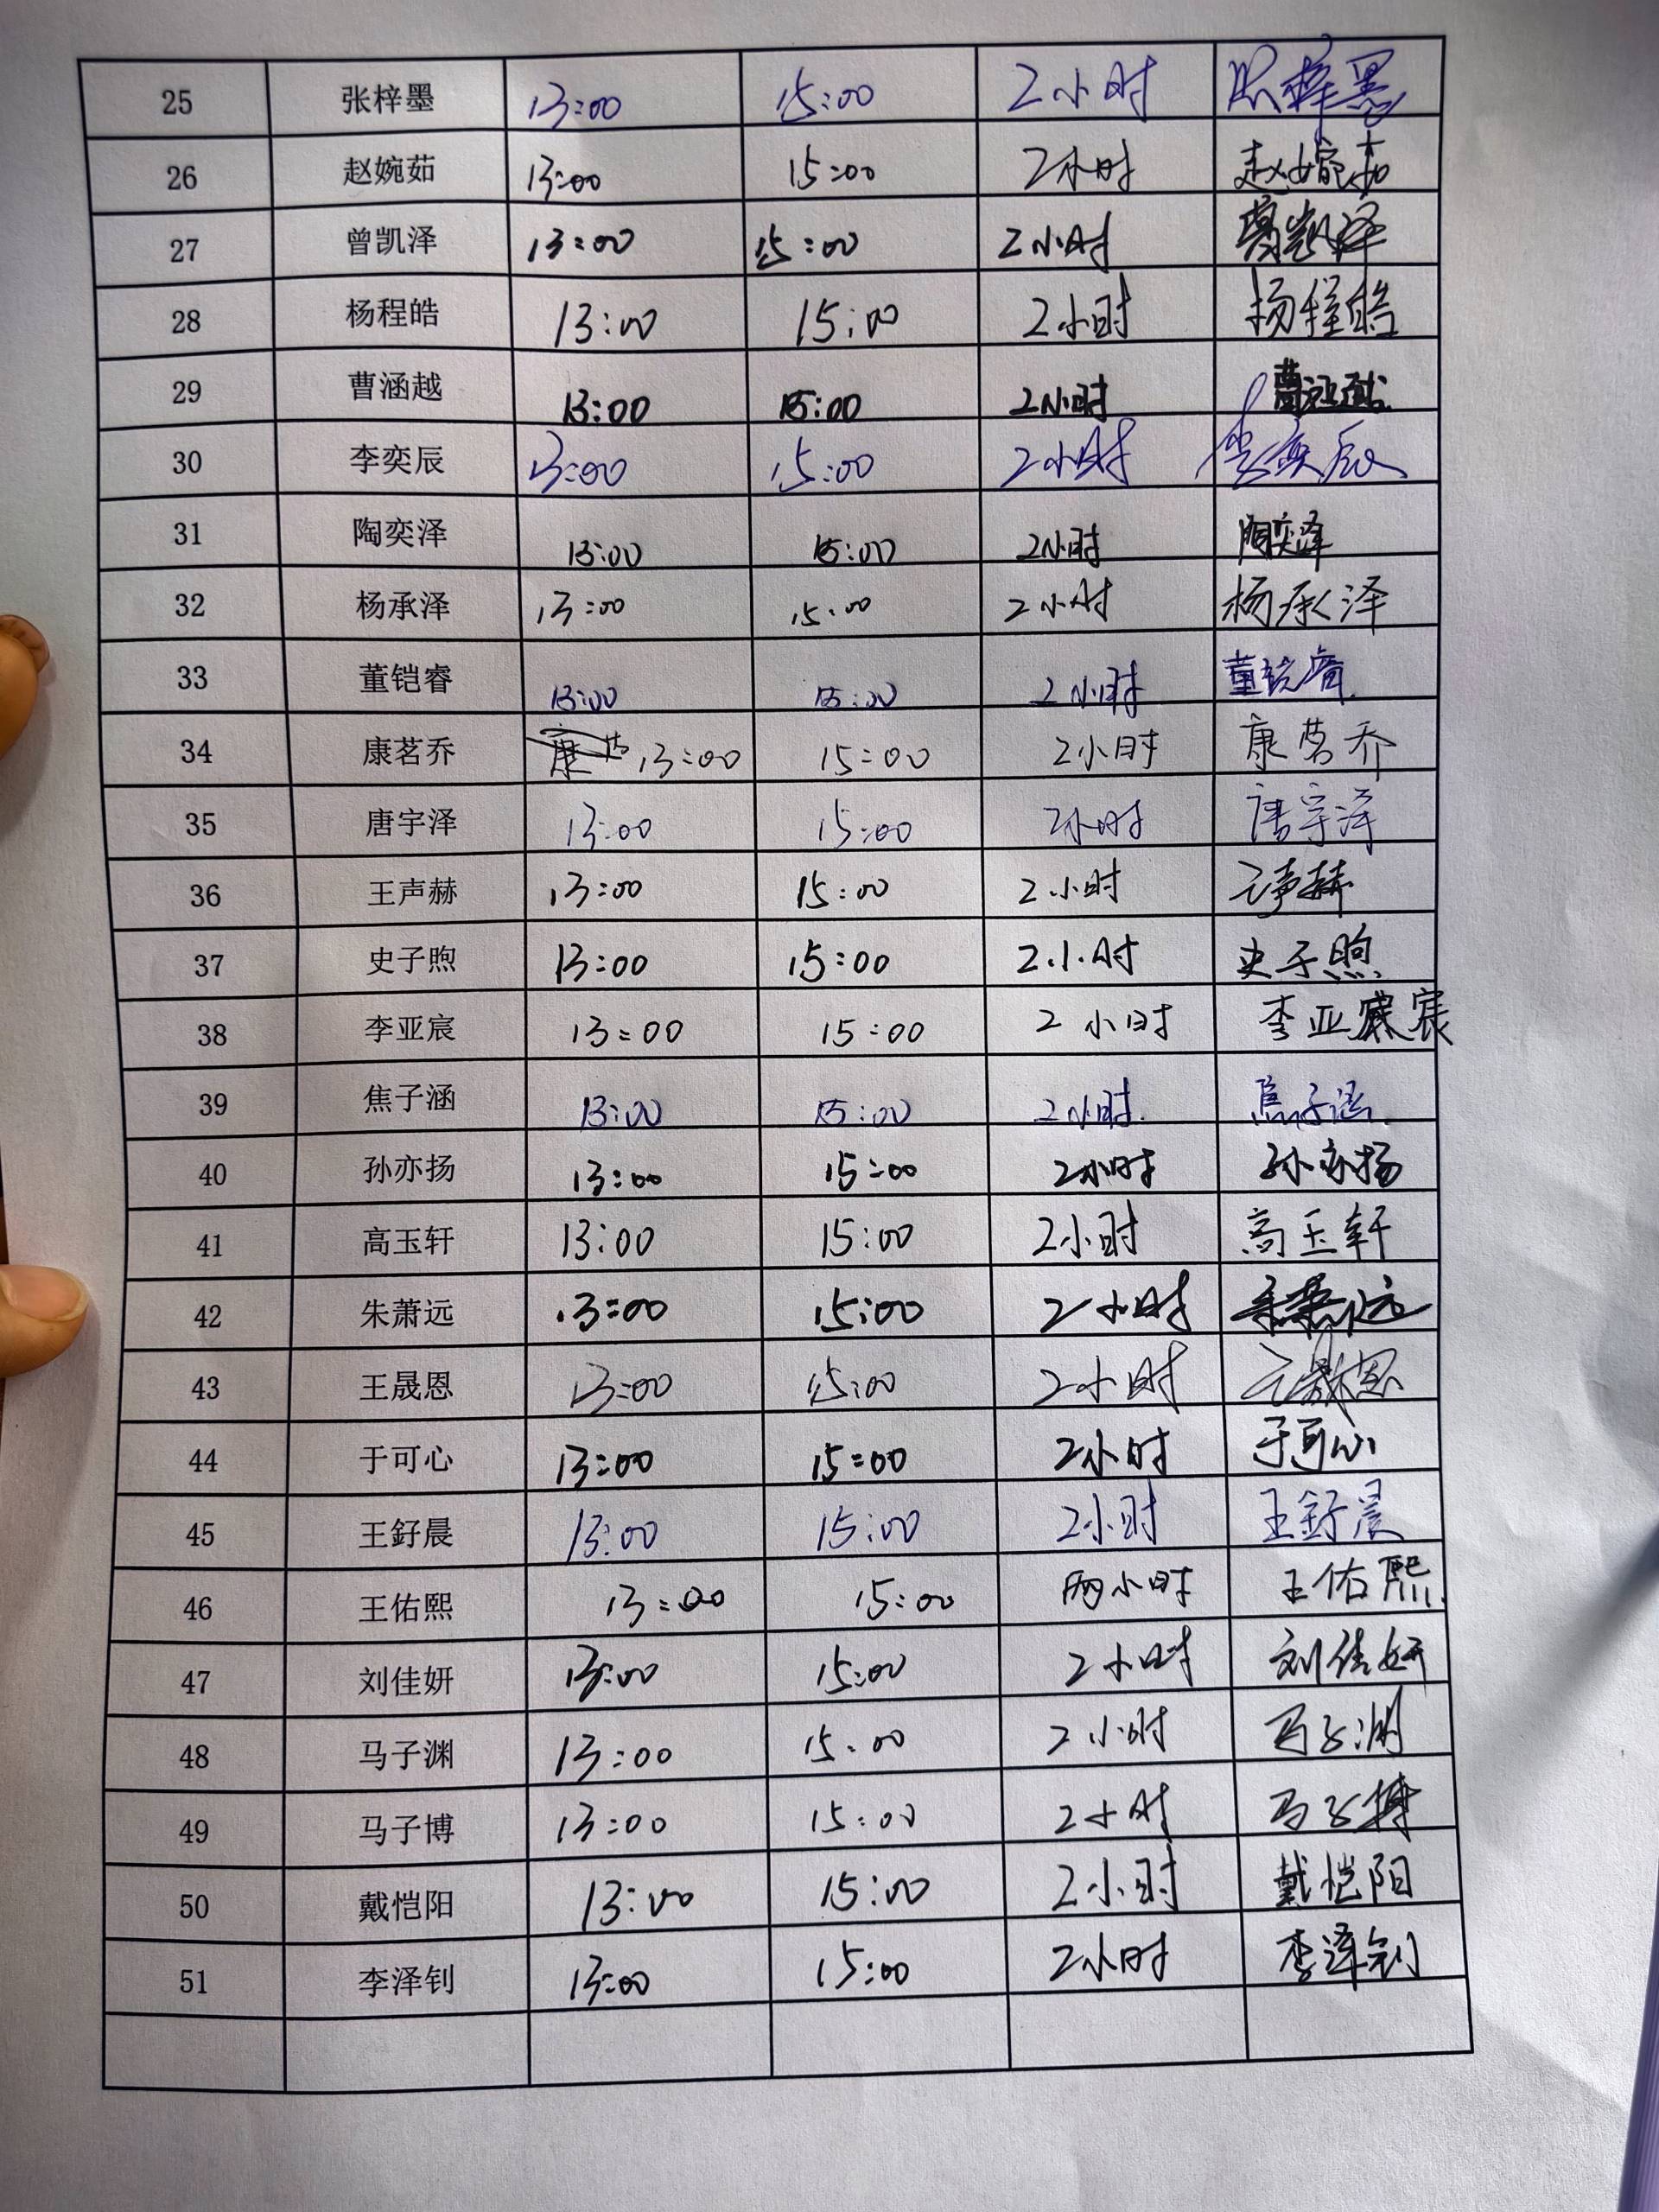 25 张梓墨 13:00 15:00 2小时 张梓墨
26 赵婉茹 13:00 15:00 2小时 赵婉茹
27 曾凯泽 13:00 15:00 2小时 曾凯泽
28 杨程皓 13:00 15:00 2小时 杨程皓
29 曹涵越 13:00 15:00 2小时 曹涵越
30 李奕辰 13:00 15:00 2小时 李奕辰
31 陶奕泽 13:00 15:00 2小时 陶奕泽
32 杨承泽 13:00 15:00 2小时 杨承泽
33 董铠睿 13:00 15:00 2小时 董铠睿
34 康茗乔 13:00 15:00 2小时 康茗乔
35 唐宇泽 13:00 15:00 2小时 唐宇泽
36 王声赫 13:00 15:00 2小时 王声赫
37 史子煦 13:00 15:00 2小时 史子煦
38 李亚宸 13:00 15:00 2小时 李亚宸
39 焦子涵 13:00 15:00 2小时 焦子涵
40 孙亦扬 13:00 15:00 2小时 孙亦扬
41 高玉轩 13:00 15:00 2小时 高玉轩
42 朱萧远 13:00 15:00 2小时 朱萧远
43 王晟恩 13:00 15:00 2小时 王晟恩
44 于可心 13:00 15:00 2小时 于可心
45 王釨晨 13:00 15:00 2小时 王釨晨
46 王佑熙 13:00 15:00 两小时 王佑熙
47 刘佳妍 13:00 15:00 2小时 刘佳妍
48 马子渊 13:00 15:00 2小时 马子渊
49 马子博 13:00 15:00 2小时 马子博
50 戴恺阳 13:00 15:00 2小时 戴恺阳
51 李泽钊 13:00 15:00 2小时 李泽钊